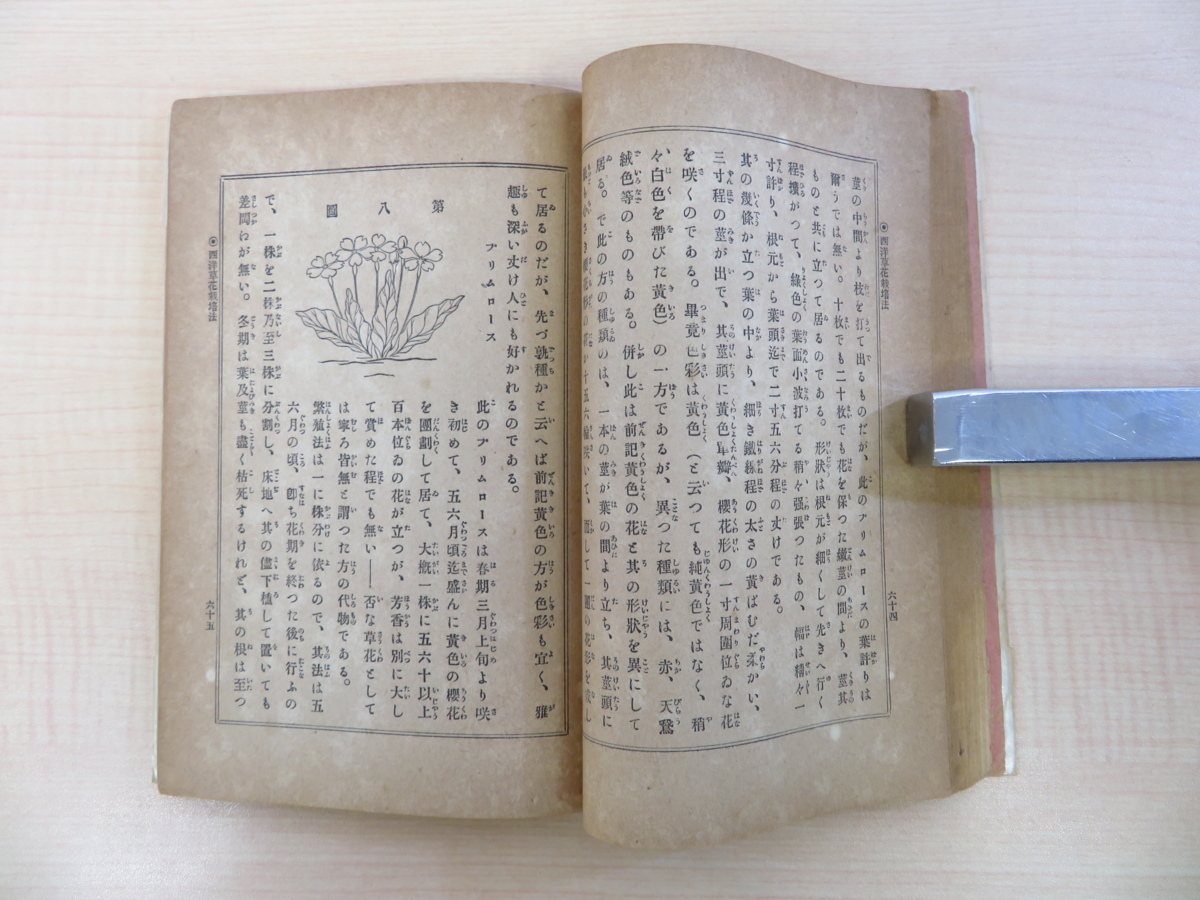 西洋草花栽培法
六十四
莖の中間より枝を打て出るものだが、此のプリムロースの葉計りは
爾うでは無い。十枚でも二十枚でも花を保つた纎莖の間より、莖其
ものと共に立つて居るのである。形狀は根元が細くして先きへ行く
程擴がつて、綠色の葉面小波打てる稍々强張つたもの、幅は精々一
寸計り、根元から葉頭迄で二寸五六分程の丈けである。
其の幾條か立つ葉の中より、細き鐵線程の太さの黃ばむだ柔かい、
三寸程の莖が出で、其莖頭に黃色單瓣、櫻花形の一寸周圍位ゐな花
を咲くのである。畢竟色彩は黃色（と云つても純黃色ではなく、稍
々白色を帶びた黃色）の一方であるが、異つた種類には、赤、天鵞
絨色等のものもある。併し此は前記黃色の花と其の形狀を異にして
居る。で此の方の種類のは、一本の莖が葉の間より立ち、其莖頭に
て居るのだが、先づ孰種かと云へば前記黃色の方が色彩も宜く、雅
趣も深い丈け人にも好かれるのである。
プリムロース
第八圖
此のプリムロースは春期三月上旬より咲
き初めて、五六月頃迄盛んに黃色の櫻花
を團劃して居て、大槪一株に五六十以上
百本位ゐの花が立つが、芳香は別に大し
て賞めた程でも無い――否な草花として
は寧ろ皆無と謂つた方の代物である。
繁殖法は一に株分に依るので、其法は五
六月の頃、卽ち花期を終つた後に行ふの
で、一株を二株乃至三株に分割し、床地へ其の儘下植して置いても
差閊わが無い。冬期は葉及莖も盡く枯死するけれど、其の根は至つ
西洋草花栽培法
六十五